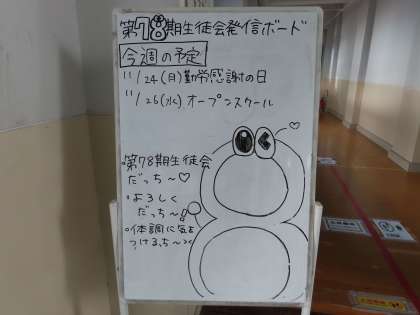 第78期生徒会発信ボード
今週の予定
11/24(月)勤労感謝の日
11/26(水)オープンスクール
・第78期生徒会
だっち〜♡
・よろしく
だっち〜!
・体調に気を
つけるっち〜